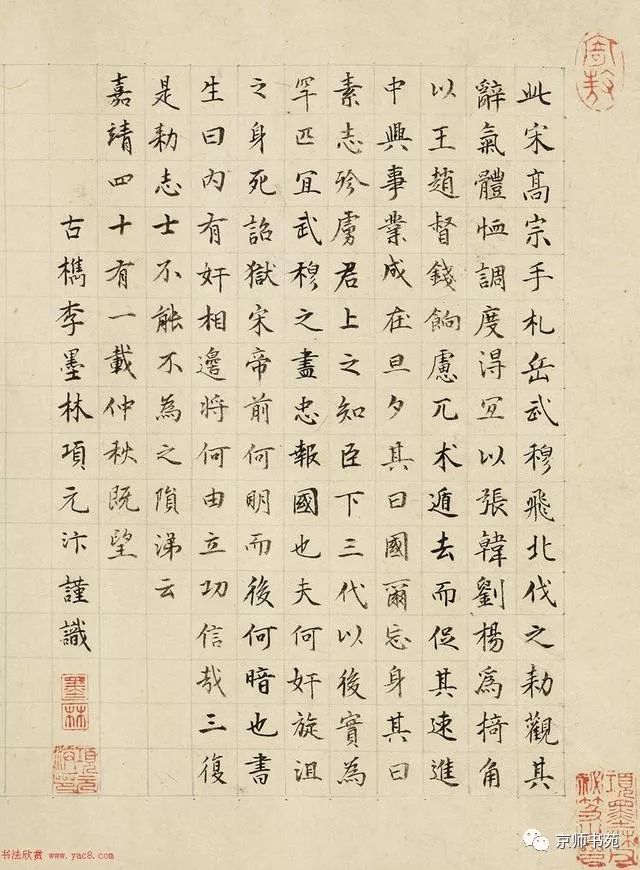 此宋髙宗手札岳武穆飛北伐之勅觀其
辭氣體恤調度得宜以張韓劉楊為掎角
以王趙督錢餉慮兀术遁去而促其速進
中興事業成在旦夕其曰國爾忘身其曰
素志殄虜君上之知臣下三代以後實為
罕匹宜武穆之盡忠報國也夫何奸旋沮
之身死詔獄宋帝前何明而後何暗也書
生曰內有奸相邊將何由立功信哉三復
是勅志士不能不為之隕涕云
嘉靖四十有一載仲秋既望
古檇李墨林項元汴謹識
墨林
項墨林父祕笈之印
书法欣赏 www.yac8.com
京师书苑